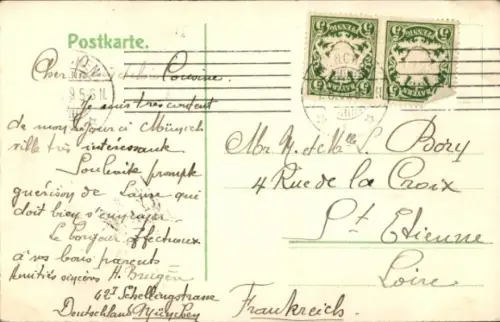 Postkarte.
Cher Cousine
Je suis très content
de mon séjour à Münich
ville très intéressante
Souhaite prompte
guérison de Laure qui
doit bien s'ennuyer
Le bonjour affectueux
à vos bons parents
Amitiés sincères H. Brugen
42I Schellingstrasse
Deutschland München
Mr. M. et Mlle L. Bory
4 Rue de la Croix
St Etienne
Loire
Frankreich.
5 PFENNIG 5
BAYERN
5 PFENNIG 5
BAYERN